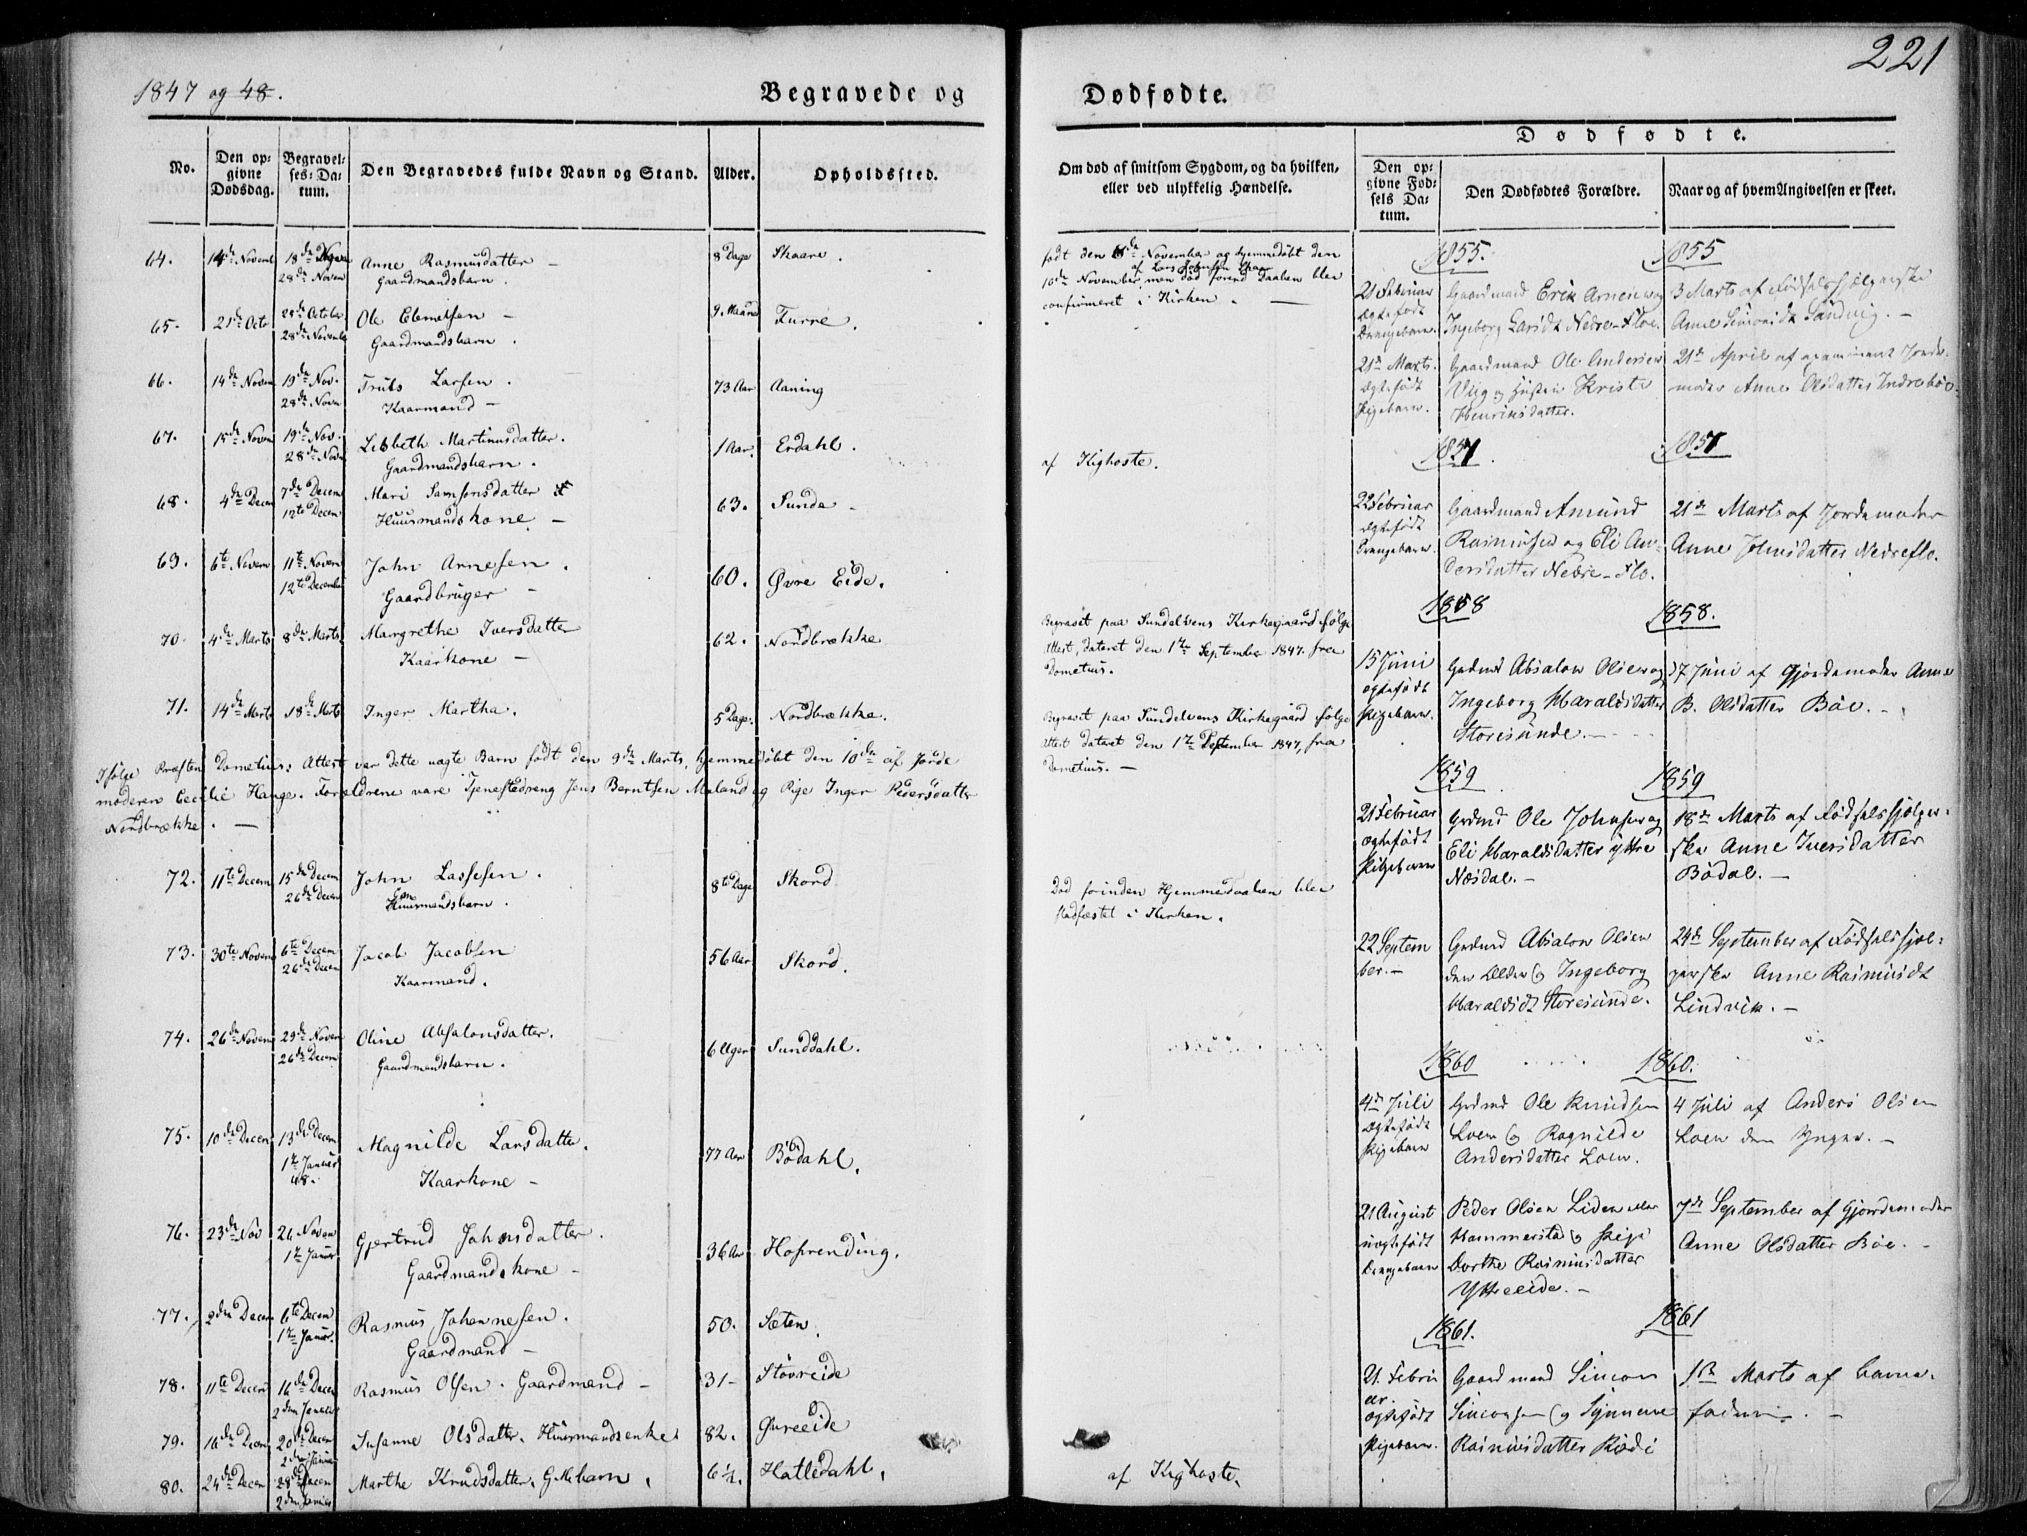 1847 og 48.
Begravede og
No.
Den op-
givne
Dødsdag.
Begravel-
ses-Da-
tum.
Den Begravedes fulde Navn og Stand.
Alder.
Opholdssted.
64. 14de Novemb 18de Novem Anne Rasmusdatter — 8 Dage Skaare.
28de Novem Gaardmandsbarn.
65. 21de Octo 28de October Ole Clemetsen — 9 Maaned Furre.
28de Novemb Gaardmandsbarn.
66. 14de Novem 19de Nov. Truls Larsen. 73 Aar Aaning
28de Novm Kaarmand —
67. 15de Novem 19de Nov. Lisbeth Martinusdatter. 1 Aar. Erdahl.
28de Novm Gaardmandsbarn.
68. 4de Decem 7de Decem Mari Samsonsdatter 63. Sunde
12te Decem Huusmandskone —
69. 6te Novem 11te Novem John Arnesen. 60. Øvre Eide.
12te December Gaardbruger —
70. 4de Marts 8de Marts Margrethe Iversdatter 62. Nordbrække
Kaarkone —
71. 14de Marts 18de Marts Inger Martha. 5 Dage. Nordbrække.
Ifølge Præsten Dometius: Attest var dette uægte Barn født den 9de Marts, hjemmedøbt den 10de af Jorde
moderen Cecilie Hauge. Forældrene vare Tjenestedreng Jens Berntsen Maland og Pige Inger Pedersdatter
Nordbrække. —
72. 11te Decem 15de Decem John Lassesen. 8te Dage Skord
26de Decem Huusmandsbarn.
73. 30te Novem 6te Decem Jacob Jacobsen 56 Aar Skord.
26de Decem Kaarmand.
74. 26de Novem 29de Novem Oline Absalonsdatter. 6 Uger Sunddahl.
26de Decem Gaardmandsbarn.
75. 10de Decem 13de Decem Magnilde Larsdatter. 77 Aar Bødahl.
1te Januar
48. Kaarkone —
76. 23de Nov 26 Novem Gjertrud Johnsdatter. 36 Aar Hofrending.
1te Januar Gaardmandskone —
77. 2den Decem 6te Decem Rasmus Johannesen. 50. Sæten.
1te Januar. Gaardmand —
78. 11te Decem 16de Decem Rasmus Olsen. Gaardmand — 31 — Støvreide
2den Januar
79. 16de Decem 20de Decem Susanne Olsdatter. Huusmandsenke 82. Øvreeide
2den Januar
80. 24de Decem 28de Decem Marthe Knudsdatter. G.M.barn. 6½. Hatledahl.
2den Januar
221
Dødfødte.
Om død af smitsom Sygdom, og da hvilken,
eller ved ulykkelig Hændelse.
Dødfødte.
Den op-
givne Fød-
sels Da-
tum.
Den Dødfødtes Forældre.
Naar og af hvem Angivelsen er skeet.
født den 6de November og hjemmedøbt den
10de November, men død forend Daaben blev
confirmeret i Kirken. —
af Kighoste.
Begravet paa Sundelvens Kirkegaard ifølge
Attest, dateret den 1te September 1847. fra
Dometius.
Begravet paa Sundelvens Kirkegaard ifølge
Attest dateret den 1te September 1847, fra
Dometius. —
Død forinden Hjemmedaaben blev
stadfæstet i Kirken.
af Kighoste.
1855. 1855
21 Februar Gaardmand Erik Arnesen og 3 Marts af Fødselshjelperske
Ægtefødt Ingeborg Larsdt Nedre-Floe. Anne Simonsdt Sandvig. —
Drengebarn.
21de Marts. Gaardmand Ole Andersen 21de April af examineret Jorde-
Ægtefødt Viig og Hustru Kristi moder Anne Olsdatter Indrebøe.
Pigebarn. Henriksdatter.
1857. 1857
22 Februar Gaardmand Amund 21de Marts af Jordemoder
Ægtefødt Rasmussen og Eli An- Anne Johnsdatter Nedreflo.
Drengebarn. dersdatter Nedre-Flo.
1858 1858.
15 Juni Grdmd Absalon Olsen og 17 Juni af Gjordemoder Anne
ægtefødt Ingeborg Haraldsdatter B. Olsdatter Bøe. —
Pigebarn. Storesunde. —
1859 1859
21 Februar Grdmd Ole Johnsen og 18de Marts af Fødselshjelper-
Ægtefødt Eli Haraldsdatter ytre ske Anne Iversdatter
Pigebarn Næsdal. — Bødal. —
22 Septem Grdmd Absalon Olsen 24de September af Fødselshjel-
ber. — den Ældre og Ingeborg perske Anne Rasmusdt
Haraldsdt Storesunde. Lindvik. —
1860 1860.
4de Juli Grdmd Ole Knudsen 4 Juli af Anders Olsen
Ægtefødt Loen og Ragnilde Loen den Yngre. —
Pigebarn Andersdatter Loen.
21 August Peder Olsen Liden eller 7de September af Gjordemoder
uægtefødt Hammerstad og Pige Anne Olsdatter Bøe. —
Drengebarn Dorthe Rasmusdatter
Ytreeide. —
1861. 1861
21. Febru Gaardmand Simon 1ste Marts af Barne-
ar. Simonsen og Synneve faderen. —
ægtefødt
Pigebarn. Rasmusdatter Rødi